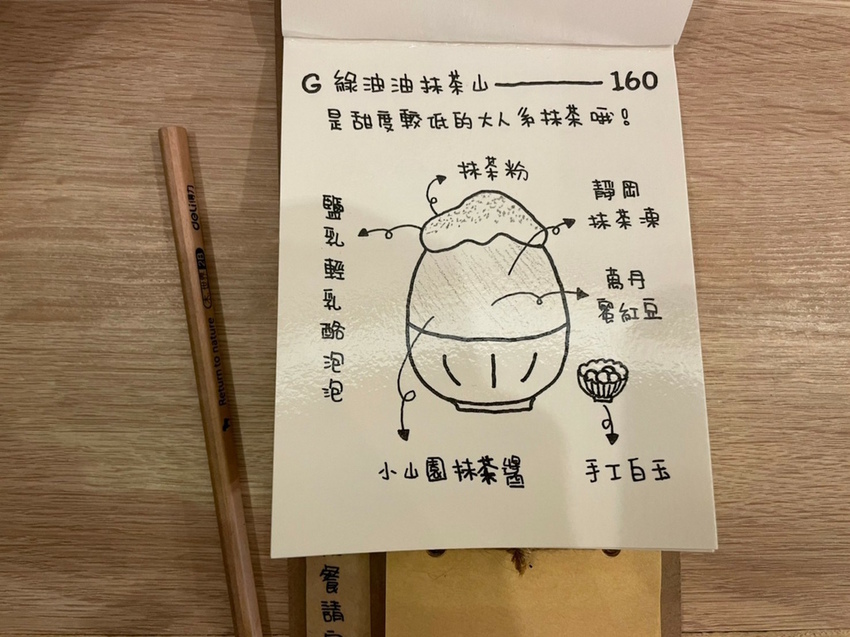 G 綠油油抹茶山 160
是甜度較低的大人系抹茶哦！
抹茶粉
鹽乳輕乳酪泡泡
靜岡
抹茶凍
萬丹
蜜紅豆
小山園抹茶醬
手工白玉
deli得力
2B
Return to nature
餐請